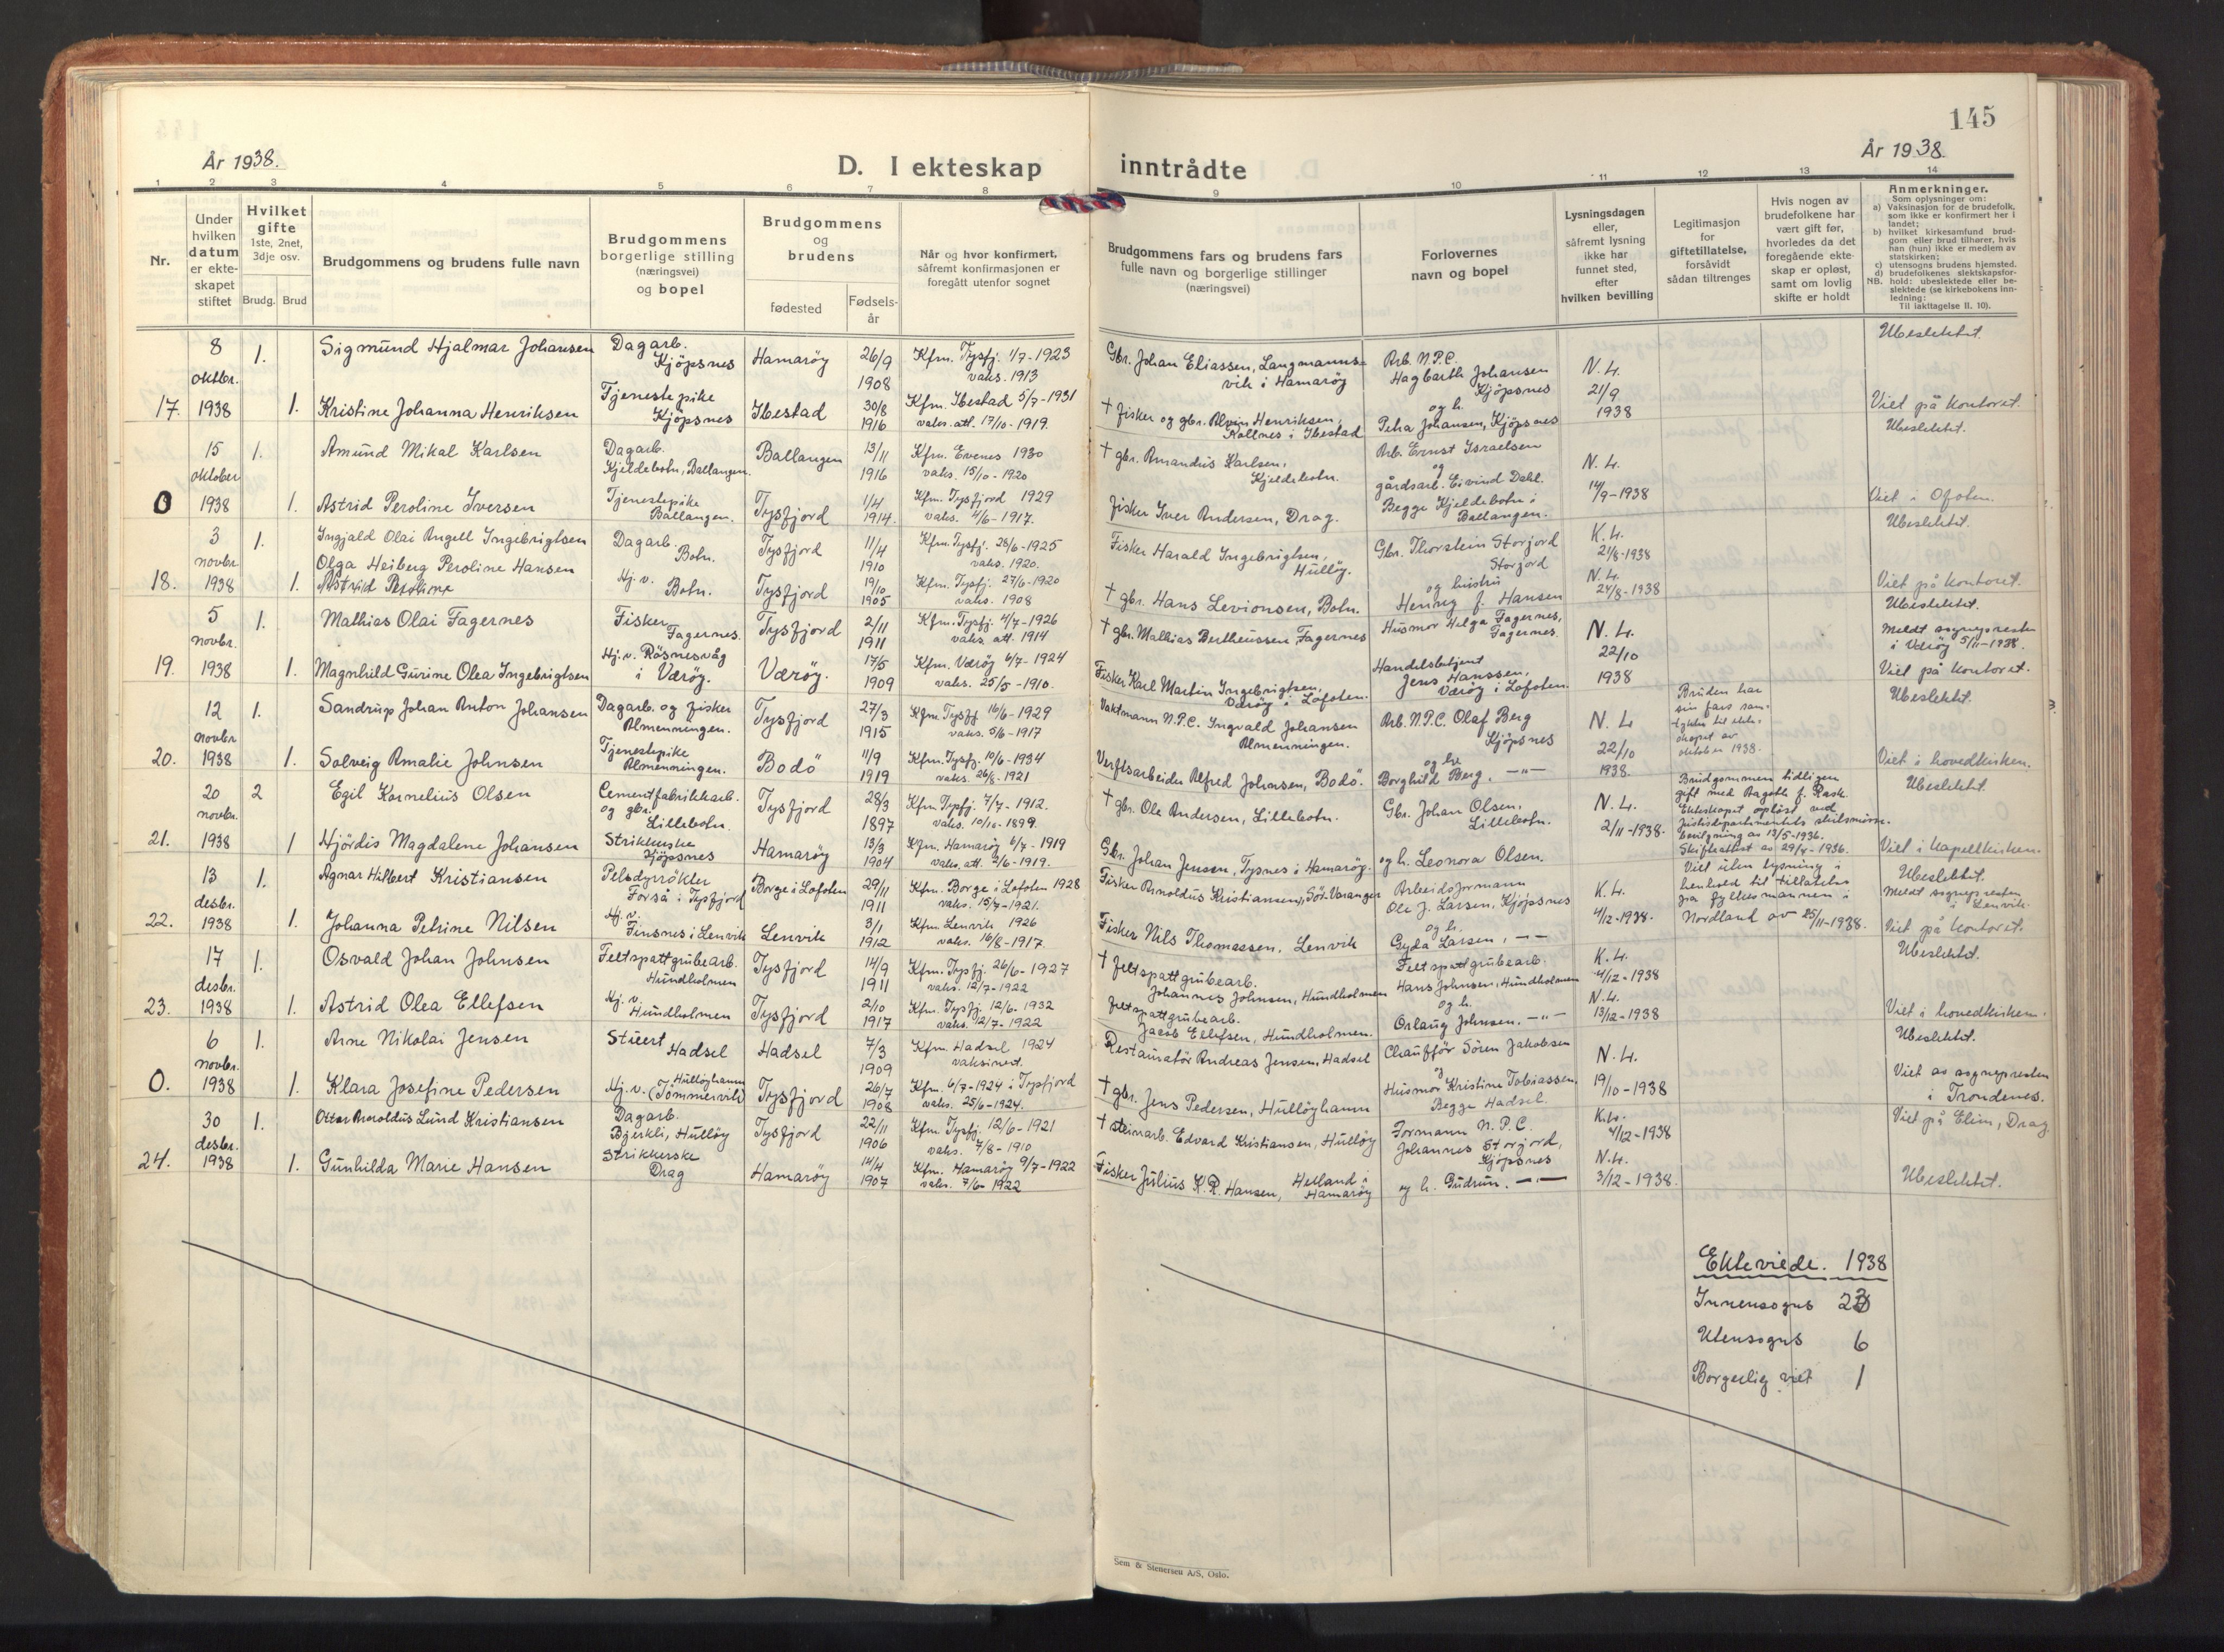 145
År 1938.
D. I ekteskap inntrådte
År 1938
1 2 3 4 5 6 7 8 9 10 11 12 13 14
Nr.
Under hvilken datum er ekteskapet stiftet
Hvilket gifte
1ste, 2net, 3dje osv.
Brudg. Brud
Brudgommens og brudens fulle navn
Brudgommens borgerlige stilling (næringsvei) og bopel
Brudgommens og brudens
fødested
Fødselsår
Når og hvor konfirmert, såfremt konfirmasjonen er foregått utenfor sognet
Brudgommens fars og brudens fars fulle navn og borgerlige stillinger (næringsvei)
Forlovernes navn og bopel
Lysningsdagen eller, såfremt lysning ikke har funnet sted, efter hvilken bevilling
Legitimasjon for giftetillatelse, forsåvidt sådan tiltrenges
Hvis nogen av brudefolkene har vært gift før, hvorledes da det foregående ekteskap er opløst, samt om lovlig skifte er holdt
Anmerkninger.
Som oplysninger om:
a) Vaksinasjon for de brudefolk, som ikke er konfirmert her i landet;
b) hvilket kirkesamfund brudgom eller brud tilhører, hvis han (hun) ikke er medlem av statskirken;
c) utensogns brudens hjemsted.
d) brudefolkenes slektskapsforhold: ubeslektede eller beslektede (se kirkebokens innledning:
NB. Til iakttagelse II. 10).
17. 8 oktbr. 1938
1. Sigmund Hjalmar Johansen Dagarb. Kjöpsnes Hamaröy 26/9 1908 Kfm. Tysfj. 1/7-1923 vaks. 1913
Gbr. Johan Eliassen, Langmannsvik i Hamaröy Arb. N.P.C. Hagbarth Johansen Kjöpsnes N.L. 21/9 1938 Ubeslektet.
1. Kristine Johanna Henriksen Tjenestepike Kjöpsnes Ibestad 30/8 1916 Kfm. Ibestad 5/7-1931 vaks. att. 17/10-1919.
† Fisker og gbr. Alvin Henriksen, Kollnes i Ibestad og h. Petra Johansen, Kjöpsnes Viet på kontoret.
0 15 oktober 1938
1. Amund Mikal Karlsen Dagarb. Kjeldebotn, Ballangen. Ballangen 13/11 1916 Kfm. Evenes 1930 vaks. 15/10-1920
† gbr. Amandus Karlsen, Kjeldebotn. Arb. Ernst Israelsen og N.L. 14/9-1938 Ubeslektet.
1. Astrid Peroline Iversen Tjenestepike Ballangen. Tysfjord 1/4 1914. Kfm. Tysfjord 1929 vaks. 4/6-1917.
Fisker Iver Andersen, Drag. gårdsarb. Eivind Dahl. Begge Kjeldebotn i Ballangen. Viet i Ofoten.
18. 3 novbr 1938
1. Ingjald Olai Angell Ingebrigtsen Dagarb. Botn. Tysfjord 11/4 1910 Kfm. Tysfj. 28/6-1925 vaks. 1920.
Fisker Harald Ingebrigtsen, Hullöy. Gbr. Thorstein Storjord Storjord K.L. 21/8-1938 Ubeslektet.
1. Olga Heiberg Peroline Hansen Hj. v. Botn. Tysfjord 19/10 1905 Kfm. Tysfj. 27/6-1920 vaks. 1908
† gbr. Hans Levionsen, Botn. og hustru Henny f. Hansen N.L. 24/8-1938 Viet på kontoret.
19. 5 novbr. 1938
1. Mathias Olai Fagernes Fisker Fagernes. Tysfjord 2/11 1911 Kfm. Tysfj. 4/7-1926 vaks. att. 1914
† gbr. Mathias Bertheussen Fagernes Husmor Helga Fagernes, Fagernes. N.L. 22/10 1938 Ubeslektet. Meldt sognepresten i Værøy 5/11-1938.
1. Magnhild Gurine Olea Ingebrigtsen Hj. v. Rösnesvåg i Væröy. Væröy. 17/5 1909 Kfm. Væröy 6/7-1924 vaks. 25/5-1910.
Fisker Karl Martin Ingebrigtsen, Væröy i Lofoten. Handelsbetjent Jens Hanssen, Væröy i Lofoten. Viet på kontoret.
20. 12 novbr 1938
1. Sandrup Johan Anton Johansen Dagarb. og fisker Almenningen. Tysfjord 27/3 1915 Kfm. Tysfj. 16/6-1929 vaks. 5/6-1917
Vaktmann N.P.C. Ingvald Johansen Almenningen. Arb. N.P.C. Olaf Berg Kjöpsnes N.L. 22/10 1938. Bruden har sin fars samtykke til ekteskapet av oktober 1938. Ubeslektet.
1. Solveig Amalie Johnsen Tjenestepike Almenningen. Bodö 11/9 1919 Kfm. Tysfj. 10/6-1934 vaks. 26/8-1921
Verftsarbeider Alfred Johnsen, Bodö. og h. Borghild Berg. —"— Viet i hovedkirken.
21. 20 novbr. 1938
2 Egil Kornelius Olsen Cementfabrikkarb. og gbr. Lillebotn. Tysfjord 28/3 1897 Kfm Tysfj. 7/7-1912. vaks. 10/10-1899.
† gbr. Ole Andersen, Lillebotn. Gbr. Johan Olsen, Lillebotn. N.L. 2/11-1938. Brudgommen tidligere gift med Ragoth f. Rask. Ekteskapet opløst ved Justisdepartementets skilsmissebevilgning av 13/5-1936. Skifteattest av 29/4-1936. Ubeslektet.
1 Hjördis Magdalene Johansen Strikkerske Kjöpsnes Hamaröy 13/3 1904 Kfm. Hamaröy 6/7-1919 vaks. att. 2/6-1919.
Gbr. Johan Jensen, Tysnes i Hamaröy. og h. Leonora Olsen. Viet i Kapellkirken.
22. 13 desbr. 1938
1. Agnar Hilbert Kristiansen Pelsdyrrökter Forså i Tysfjord Borge i Lofoten 29/11 1911 Kfm. Borge i Lofoten 1928 vaks. 15/7-1921.
Fisker Arnoldus Kristiansen, Sör-Varanger Arbeidsformann Ole J. Larsen, Kjöpsnes K.L. 4/12-1938. Viet uten lysning i henhold til tillatelse fra fylkesmannen i Nordland av 25/11-1938. Ubeslektet. Meldt sognepresten i Lenvik.
1. Johanna Petrine Nilsen Hj. v. Finsnes i Lenvik Lenvik 3/1 1912 Kfm Lenvik 1926 vaks. 16/8-1917.
Fisker Nils Thomassen, Lenvik og h. Gyda Larsen, —"— Viet på kontoret.
23. 17 desbr. 1938
1. Osvald Johan Johnsen Feltspattgrubearb. Hundholmen Tysfjord 14/9 1911 Kfm. Tysfj. 26/6-1927 vaks. 12/7-1922
† feltspattgrubearb. Johannes Johnsen, Hundholmen Feltspattgrubearb. Hans Johnsen, Hundholmen K.L. 4/12-1938 Ubeslektet.
1. Astrid Olea Ellefsen Hj. v. Hundholmen Tysfjord 2/10 1917 Kfm. Tysfj. 12/6-1932 vaks. 12/7-1922
Feltspattgrubearb. Jacob Ellefsen, Hundholmen. og h. Orlaug Johnsen. —"— N.L. 13/12-1938 Viet i hovedkirken.
0. 6 novbr. 1938
1. Arne Nikolai Jensen Stuert Hadsel Hadsel 7/3 1909 Kfm. Hadsel 1924 vaksinert.
Restauratör Andreas Jensen, Hadsel Chaufför Sören Jakobsen og N.L. 19/10-1938 Ubeslektet.
1. Klara Josefine Pedersen Hj. v. Hullöyhamn (Tömmervik) Tysfjord 26/7 1908 Kfm. 6/7-1924 i Tysfjord vaks. 25/6-1924.
† gbr. Jens Pedersen, Hullöyhamn Husmor Kristine Tobiassen. Begge Hadsel. Viet av sognepresten i Trondenes.
24. 30 desbr. 1938
1. Ottar Arnoldus Lund Kristiansen Dagarb. Bjerkli, Hullöy Tysfjord 22/11 1906 Kfm. Tysfj. 12/6-1921 vaks. 7/8-1910
† steinarb. Edvard Kristiansen, Hullöy Formann N.P.C. Johannes Storjord, Kjöpsnes K.L. 4/12-1938 Viet på Elim, Drag.
1. Gunhilda Marie Hansen Strikkerske Drag Hamaröy 14/4 1907 Kfm. Hamaröy 9/7-1922 vaks. 7/6-1922
Fisker Julius K. R. Hansen, Helland i Hamaröy og h. Gudrun. —"— N.L. 3/12-1938. Ubeslektet.
Ekteviede. 1938
Innensogns 23
Utensogns 6
Borgerlig viet 1
Sem & Stenersen A/S, Oslo.